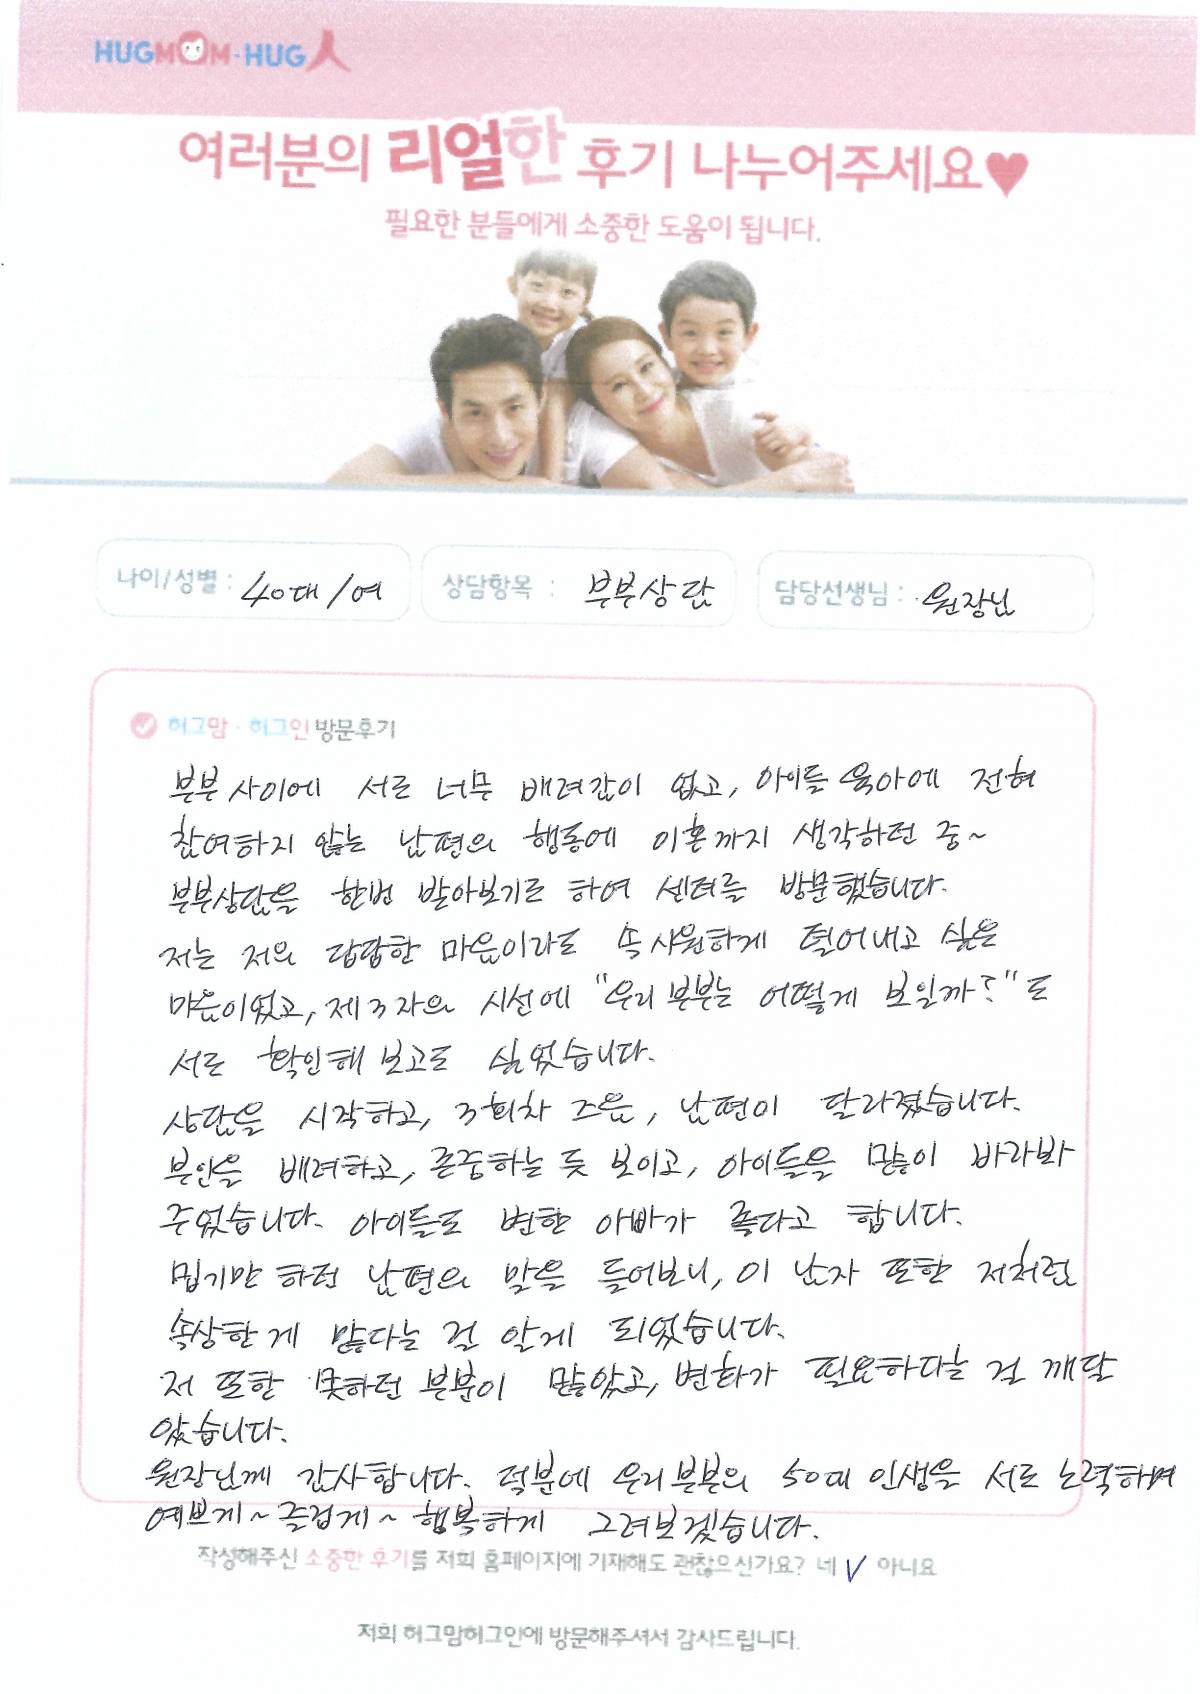 HUGMOM·HUG人
여러분의 리얼한 후기 나누어주세요♥
필요한 분들에게 소중한 도움이 됩니다.
나이/성별 : 40대/여 상담항목 : 부부상담 담당선생님 : 원장님
허그맘·허그인 방문후기
부부 사이에 서로 너무 배려감이 없고, 아이들 육아에 전혀
참여하지 않는 남편의 행동에 이혼까지 생각하던 중~
부부상담을 한번 받아보기로 하여 센터를 방문했습니다.
저는 저의 답답한 마음이라도 속 시원하게 털어내고 싶은
마음이었고, 제3자의 시선에 "우리 부부는 어떻게 보일까?"도
서로 확인해 보고도 싶었습니다.
상담을 시작하고, 3회차 즈음, 남편이 달라졌습니다.
부인을 배려하고, 존중하는 듯 보이고, 아이들을 많이 바라봐
주었습니다. 아이들도 변한 아빠가 좋다고 합니다.
밉기만 하던 남편의 말을 들어보니, 이 남자 또한 저처럼
속상한 게 많다는 걸 알게 되었습니다.
저 또한 못하던 부분이 많았고, 변화가 필요하다는 걸 깨달
았습니다.
원장님께 감사합니다. 덕분에 우리 부부의 50대 인생을 서로 노력하며
예쁘게~ 즐겁게~ 행복하게 그려보겠습니다.
작성해주신 소중한 후기를 저희 홈페이지에 기재해도 괜찮으신가요? 네 V 아니요
저희 허그맘허그인에 방문해주셔서 감사드립니다.